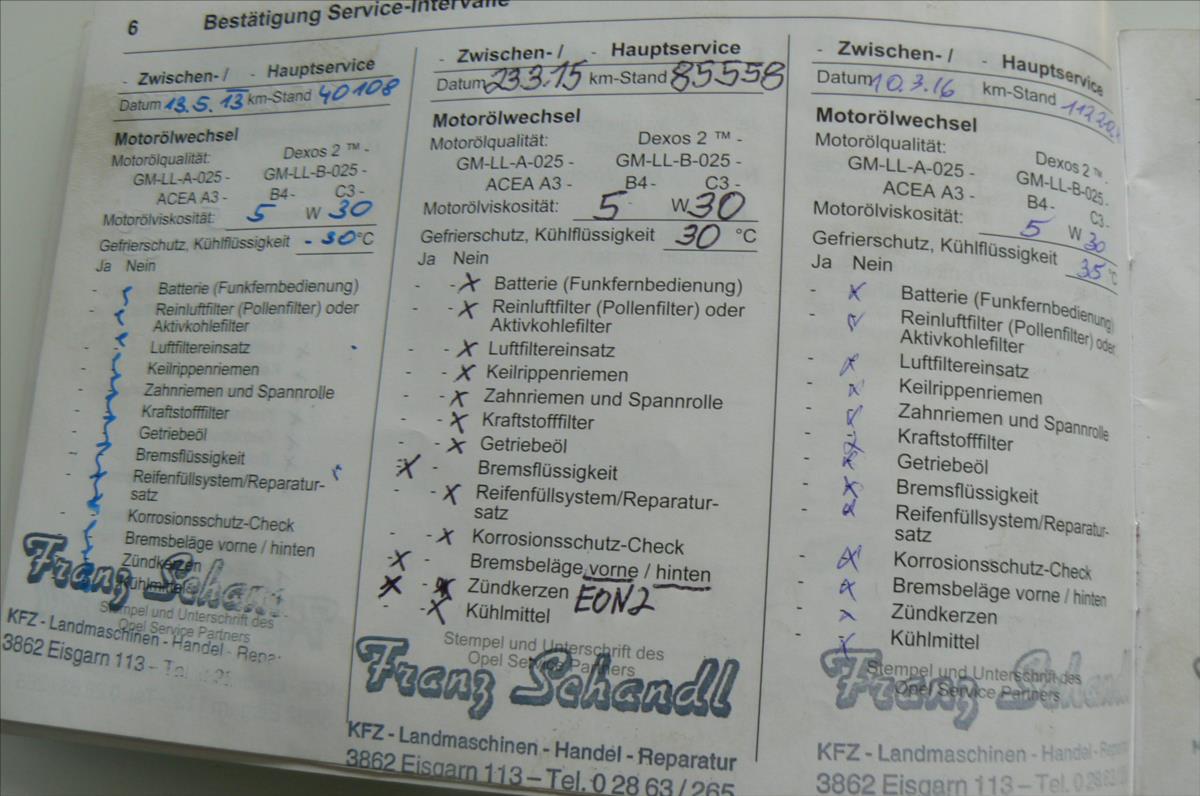 6 Bestätigung Service-Intervalle
- Zwischen- / - Hauptservice
Datum 13.5.13 km-Stand 40108
Motorölwechsel
Motorölqualität: Dexos 2 ™ -
GM-LL-A-025 - GM-LL-B-025 -
ACEA A3 - B4 - C3 -
Motorölviskosität: 5 W 30
Gefrierschutz, Kühlflüssigkeit - 30 °C
Ja Nein
- Batterie (Funkfernbedienung)
- Reinluftfilter (Pollenfilter) oder
Aktivkohlefilter
- Luftfiltereinsatz
- Keilrippenriemen
- Zahnriemen und Spannrolle
- Kraftstofffilter
- Getriebeöl
- Bremsflüssigkeit
- Reifenfüllsystem/Reparatur-
satz
- Korrosionsschutz-Check
- Bremsbeläge vorne / hinten
Zündkerzen
Kühlmittel
Stempel und Unterschrift des
Opel Service Partners
Franz Schandl
KFZ - Landmaschinen - Handel - Repa
3862 Eisgarn 113 – Tel.
- Zwischen- / - Hauptservice
Datum 23.3.15 km-Stand 85558
Motorölwechsel
Motorölqualität: Dexos 2 ™ -
GM-LL-A-025 - GM-LL-B-025 -
ACEA A3 - B4 - C3 -
Motorölviskosität: 5 W 30
Gefrierschutz, Kühlflüssigkeit 30 °C
Ja Nein
- - x Batterie (Funkfernbedienung)
- - x Reinluftfilter (Pollenfilter) oder
Aktivkohlefilter
- - x Luftfiltereinsatz
- - x Keilrippenriemen
- - x Zahnriemen und Spannrolle
- - x Kraftstofffilter
- - x Getriebeöl
x - Bremsflüssigkeit
- - x Reifenfüllsystem/Reparatur-
satz
- - x Korrosionsschutz-Check
x - Bremsbeläge vorne / hinten
x - x Zündkerzen EON2
- - x Kühlmittel
Stempel und Unterschrift des
Opel Service Partners
Franz Schandl
KFZ - Landmaschinen - Handel - Reparatur
3862 Eisgarn 113 – Tel. 0 28 63 / 265
- Zwischen- / - Hauptservice
Datum 10.3.16 km-Stand
Motorölwechsel
Motorölqualität: Dexos 2 ™ -
GM-LL-A-025 - GM-LL-B-025 -
ACEA A3 - B4 - C3 -
Motorölviskosität: 5 W 30
Gefrierschutz, Kühlflüssigkeit 35 °C
Ja Nein
- x Batterie (Funkfernbedienung)
- x Reinluftfilter (Pollenfilter) oder
Aktivkohlefilter
- x Luftfiltereinsatz
- x Keilrippenriemen
- x Zahnriemen und Spannrolle
- x Kraftstofffilter
- x Getriebeöl
- x Bremsflüssigkeit
- x Reifenfüllsystem/Reparatur-
satz
- x Korrosionsschutz-Check
- x Bremsbeläge vorne / hinten
- x Zündkerzen
- x Kühlmittel
Stempel und Unterschrift des
Opel Service Partners
Franz Schandl
KFZ - Landmaschinen - Handel - Repa
3862 Eisgarn 113 – Tel. 0 28 63 /